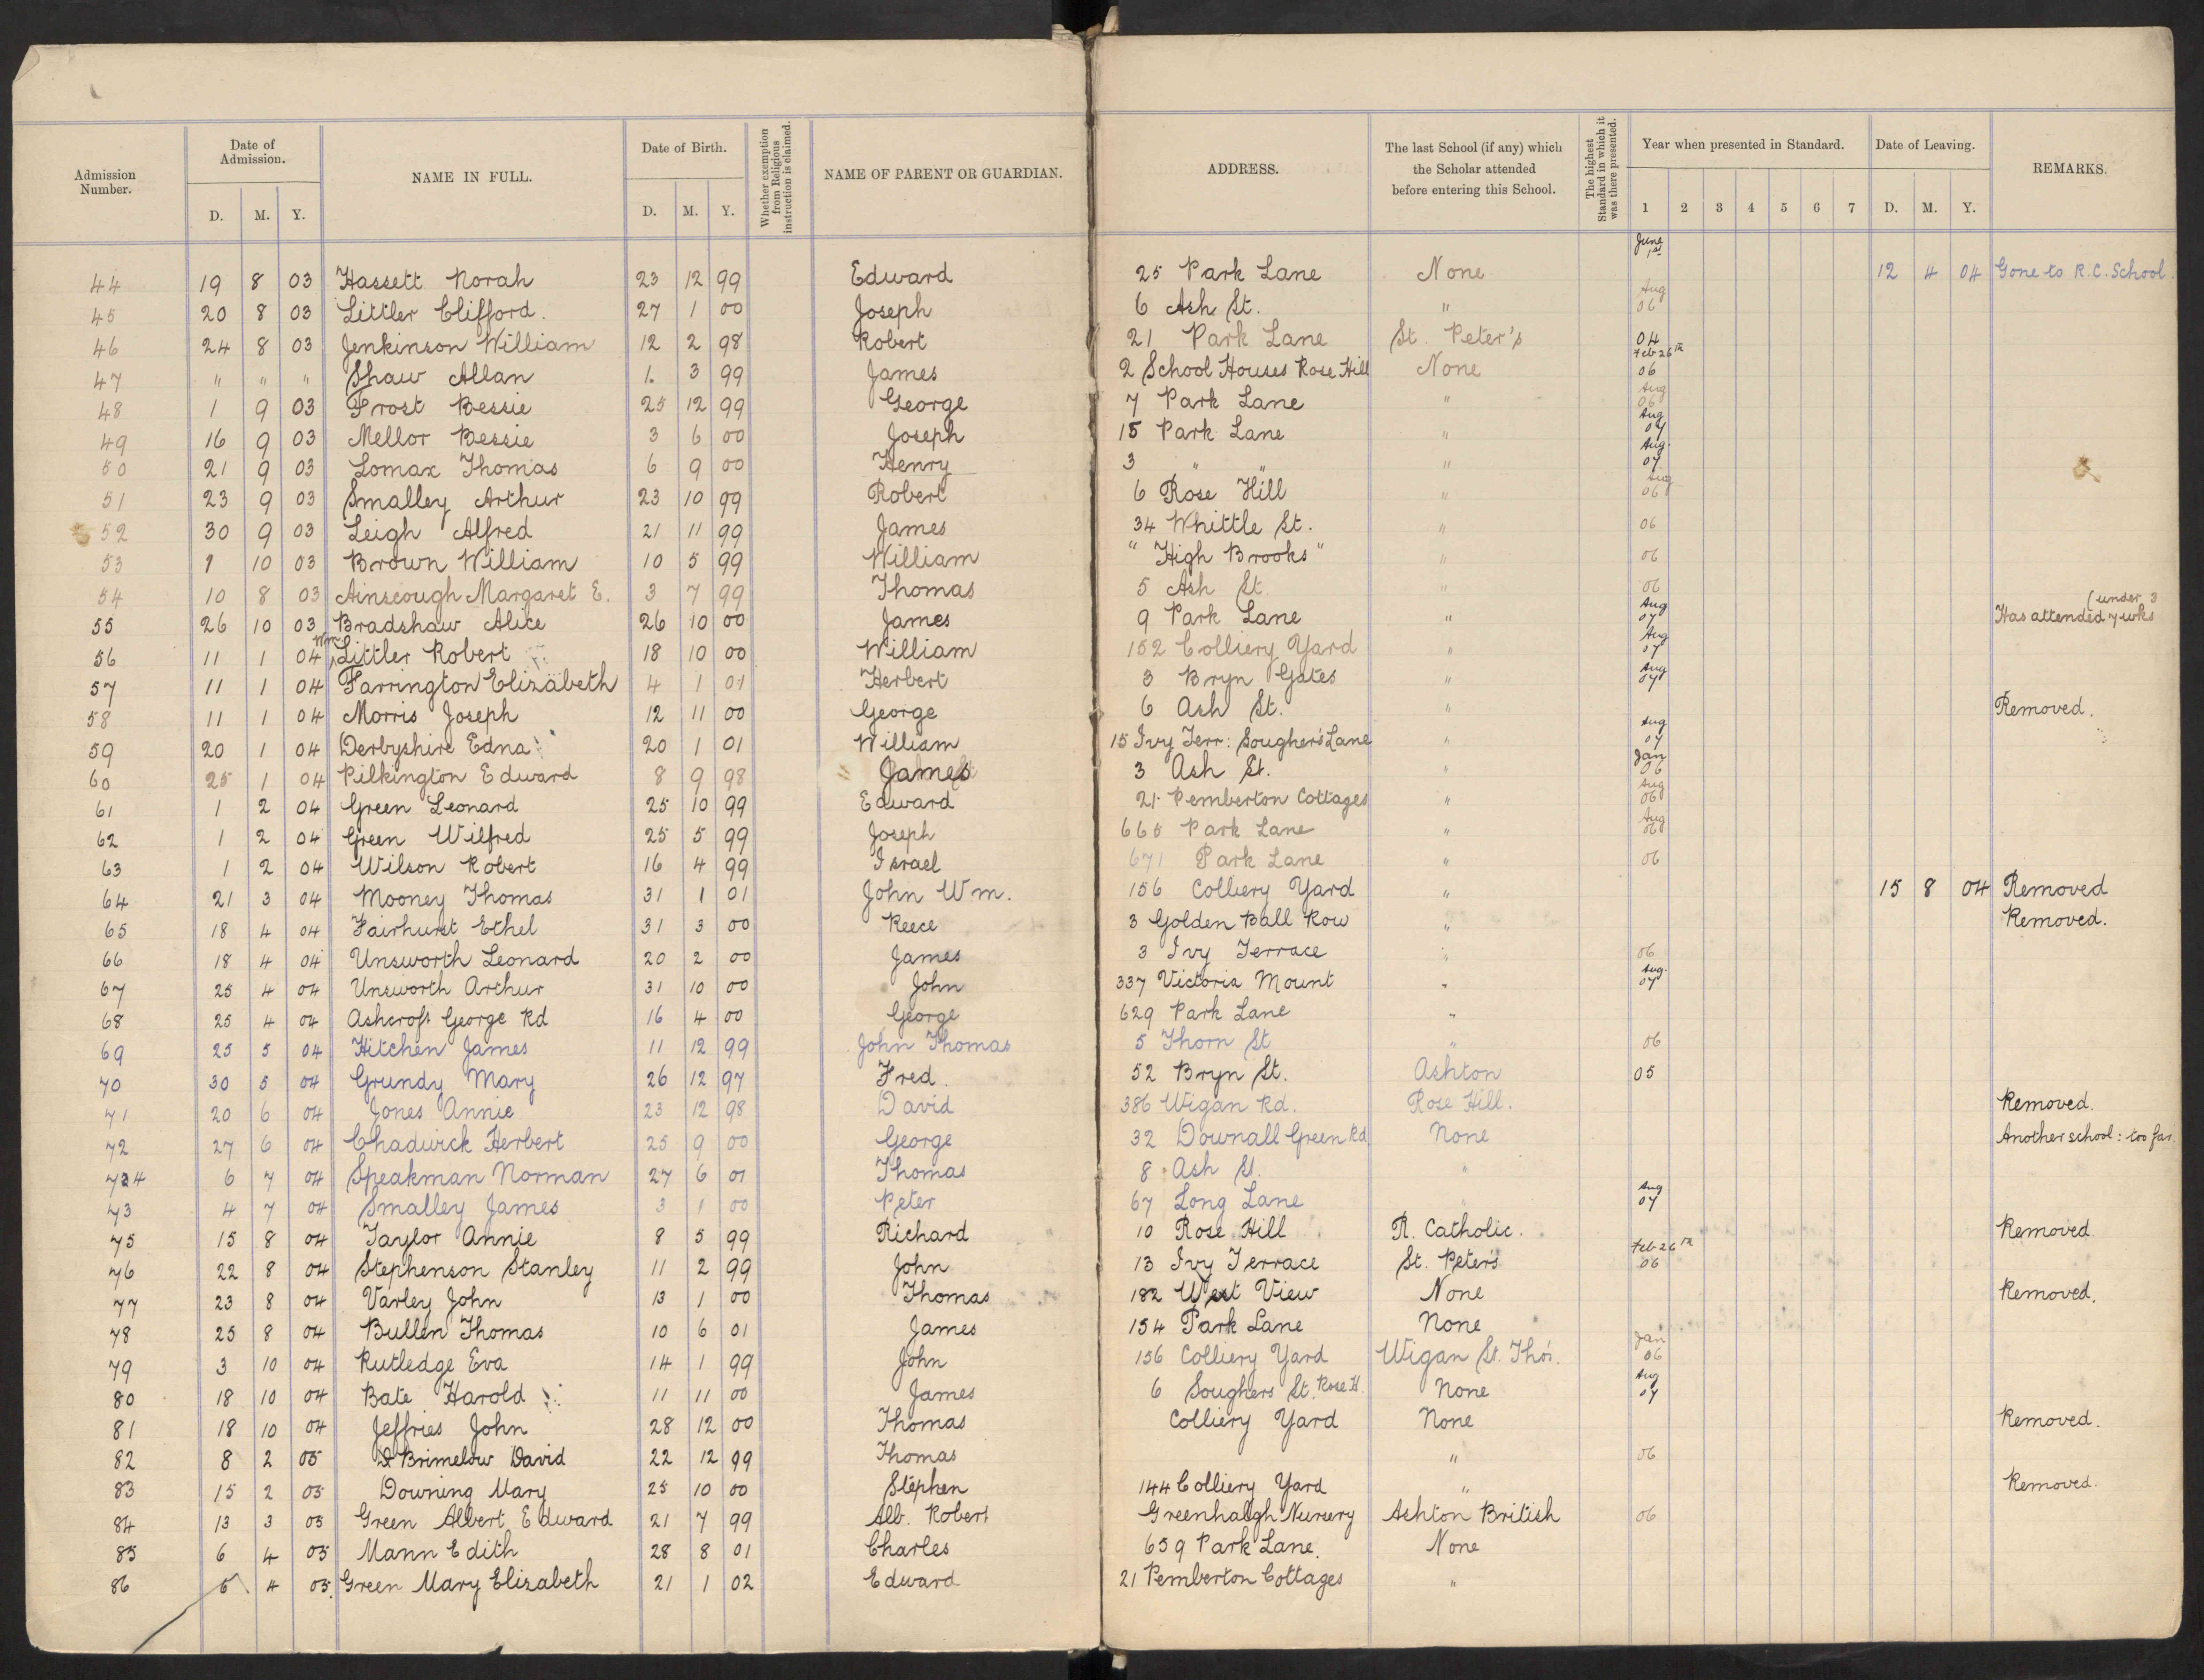 Admission Number. Date of Admission. D. M. Y. NAME IN FULL. Date of Birth. D. M. Y. Whether exemption from Religious instruction is claimed. NAME OF PARENT OR GUARDIAN. ADDRESS. The last School (if any) which the Scholar attended before entering this School. The highest Standard in which it was there presented. Year when presented in Standard. 1 2 3 4 5 6 7 Date of Leaving. D. M. Y. REMARKS.
June 1st
44 19 8 03 Hassett Norah 23 12 99 Edward 25 Park Lane None 12 4 04 Gone to R.C. School.
45 20 8 03 Littler Clifford. 27 1 00 Joseph 6 Ash St. " Aug 06
46 24 8 03 Jenkinson William 12 2 98 Robert 21 Park Lane St. Peter's 04
47 " " " Shaw Allan 1. 3 99 James 2 School Houses Rose Hill None Feb 26th 06
48 1 9 03 Frost Bessie 25 12 99 George 7 Park Lane " Aug 06
49 16 9 03 Mellor Bessie 3 6 00 Joseph 15 Park Lane " Aug 07
50 21 9 03 Lomax Thomas 6 9 00 Henry 3 " " " Aug. 07
51 23 9 03 Smalley Arthur 23 10 99 Robert 6 Rose Hill " Aug 06
52 30 9 03 Leigh Alfred 21 11 99 James 34 Whittle St. " 06
53 1 10 03 Brown William 10 5 99 William "High Brooks" " 06
54 10 8 03 Ainscough Margaret E. 3 7 99 Thomas 5 Ash St. " 06
55 26 10 03 Bradshaw Alice 26 10 00 James 9 Park Lane " Aug 07 Has attended 7 wks (under 3
56 11 1 04 Wm. Littler Robert 18 10 00 William 152 Colliery Yard " Aug 07
57 11 1 04 Farrington Elizabeth 4 1 01 Herbert 3 Bryn Gates " Aug 07
58 11 1 04 Morris Joseph 12 11 00 George 6 Ash St. " Removed.
59 20 1 04 Derbyshire Edna 20 1 01 William 15 Ivy Terr: Sougher's Lane " Aug 07
60 25 1 04 Pilkington Edward 8 9 98 James 3 Ash St. " Jan 06
61 1 2 04 Green Leonard 25 10 99 Edward 21 Pemberton Cottages " Aug 06
62 1 2 04 Green Wilfred 25 5 99 Joseph 665 Park Lane " Aug 06
63 1 2 04 Wilson Robert 16 4 99 Israel 671 Park Lane " 06
64 21 3 04 Mooney Thomas 31 1 01 John Wm. 156 Colliery Yard " 15 8 04 Removed
65 18 4 04 Fairhurst Ethel 31 3 00 Reece 3 Golden Ball Row " Removed.
66 18 4 04 Unsworth Leonard 20 2 00 James 3 Ivy Terrace " 06
67 25 4 04 Unsworth Arthur 31 10 00 John 337 Victoria Mount " Aug. 07
68 25 4 04 Ashcroft George Rd 16 4 00 George 629 Park Lane "
69 25 5 04 Hitchen James 11 12 99 John Thomas 5 Thorn St " 06
70 30 5 04 Grundy Mary 26 12 97 Fred. 52 Bryn St. Ashton 05
71 20 6 04 Jones Annie 23 12 98 David 386 Wigan Rd. Rose Hill. Removed.
72 27 6 04 Chadwick Herbert 25 9 00 George 32 Downall Green Rd None Another school: too far
74 6 7 04 Speakman Norman 27 6 01 Thomas 8 Ash St. "
73 4 7 04 Smalley James 3 1 00 Peter 67 Long Lane " Aug 07
75 15 8 04 Taylor Annie 8 5 99 Richard 10 Rose Hill R. Catholic. Removed
76 22 8 04 Stephenson Stanley 11 2 99 John 13 Ivy Terrace St. Peter's Feb 26th 06
77 23 8 04 Varley John 13 1 00 Thomas 182 West View None Removed.
78 25 8 04 Bullen Thomas 10 6 01 James 154 Park Lane None
79 3 10 04 Rutledge Eva 14 1 99 John 156 Colliery Yard Wigan St. Tho's. Jan 06
80 18 10 04 Bate Harold 11 11 00 James 6 Soughers St. Rose H. None Aug 07
81 18 10 04 Jeffries John 28 12 00 Thomas Colliery Yard None Removed.
82 8 2 05 Brimelow David 22 12 99 Thomas " 06
83 15 2 05 Downing Mary 25 10 00 Stephen 144 Colliery Yard " Removed.
84 13 3 05 Green Albert Edward 21 7 99 Alb. Robert Greenhalgh Nursery Ashton British 06
85 6 4 05 Mann Edith 28 8 01 Charles 659 Park Lane. None
86 6 4 05. Green Mary Elizabeth 21 1 02 Edward 21 Pemberton Cottages "